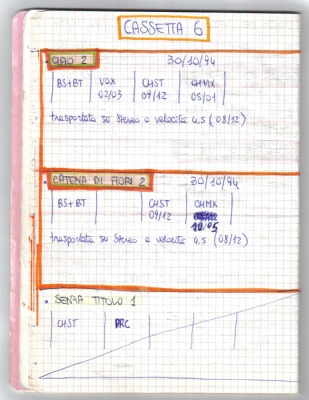 CASSETTA 6
CIAO 2 30/10/94
BS+BT VOX CHST CHMX
02/03 09/12 05/01
trasportata su Stereo a velocità 4.5 (08/12)
CATENA DI FIORI 2 30/10/94
BS+BT CHST CHMX
09/12
10/05
trasportata su Stereo a velocità 4.5 (08/12)
SENZA TITOLO 1
CHST DRC